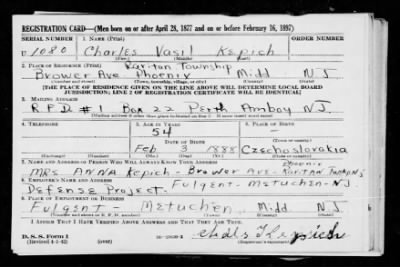 REGISTRATION CARD—(Men born on or after April 28, 1877 and on or before February 16, 1897)
SERIAL NUMBER 1. NAME (Print) ORDER NUMBER
U 1080 Charles Vasil Kepich
(First) (Middle) (Last)
2. PLACE OF RESIDENCE (Print) Raritan Township
Brower Ave Phoenix Midd NJ
(Number and street) (Town, township, village, or city) (County) (State)
[THE PLACE OF RESIDENCE GIVEN ON THE LINE ABOVE WILL DETERMINE LOCAL BOARD JURISDICTION; LINE 2 OF REGISTRATION CERTIFICATE WILL BE IDENTICAL]
3. MAILING ADDRESS
RFD #1 Box 22 Perth Amboy NJ
[Mailing address if other than place indicated on line 2. If same insert word same]
4. TELEPHONE 5. AGE IN YEARS 6. PLACE OF BIRTH
54 —
DATE OF BIRTH (Town or county)
Feb 3 1888 Czechoslovakia
(Exchange) (Number) (Mo.) (Day) (Yr.) (State or country)
7. NAME AND ADDRESS OF PERSON WHO WILL ALWAYS KNOW YOUR ADDRESS Phoenix
MRS ANNA Kepich - Brower Ave - Raritan
8. EMPLOYER'S NAME AND ADDRESS
Defense Project - Fulgent - Metuchen - NJ
9. PLACE OF EMPLOYMENT OR BUSINESS
Fulgent - Metuchen Midd NJ
(Number and street or R. F. D. number) (Town) (County) (State)
I AFFIRM THAT I HAVE VERIFIED ABOVE ANSWERS AND THAT THEY ARE TRUE.
D. S. S. Form 1
(Revised 4-1-42) (over)